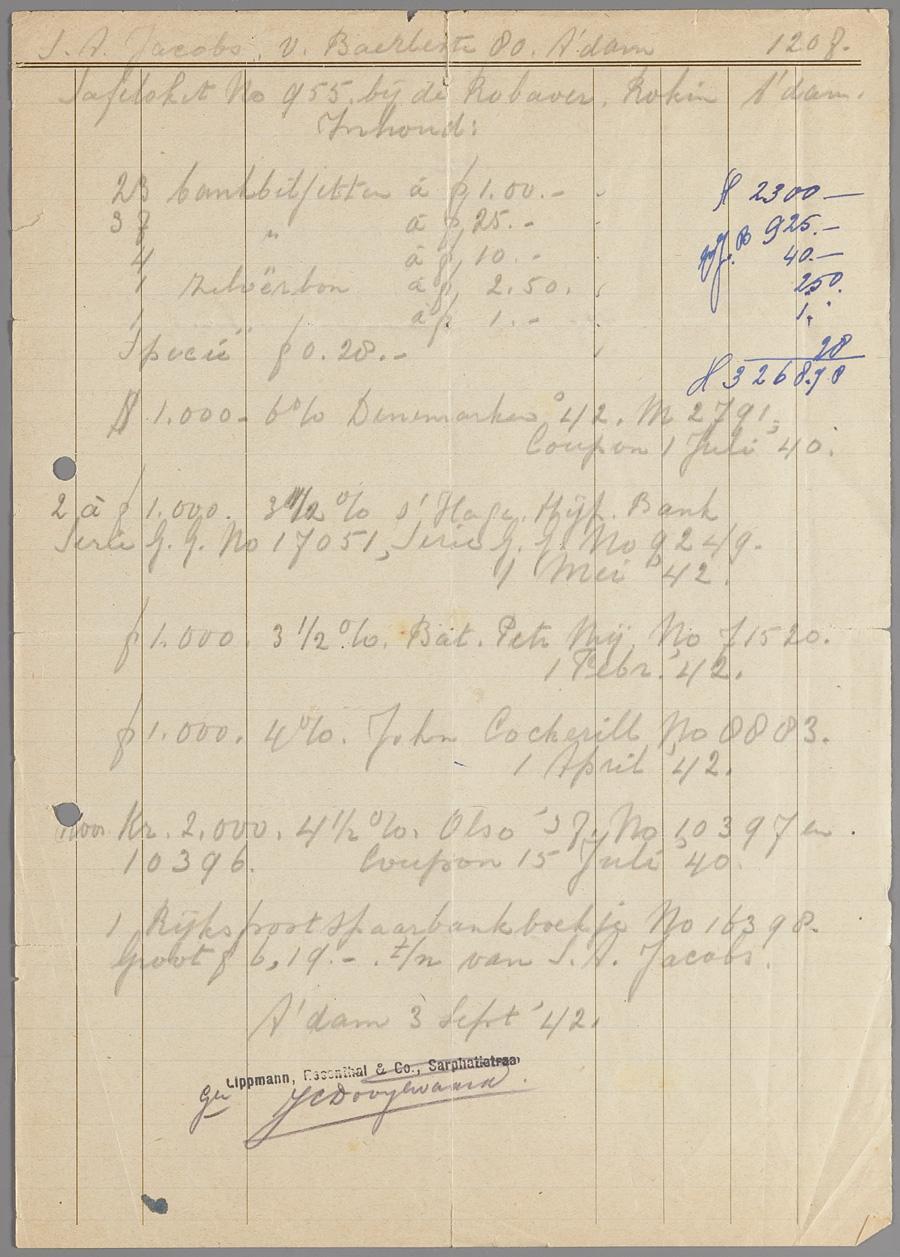 S. A. Jacobs, v. Baerlestr 80. A'dam 1208.
Safeloket No 955. bij de Robaver, Rokin A'dam.
Inhoud:
23 bankbiljetten á f 1.00.-
37 " á f 25.-
4 á f 10.-
1 zilverbon á f 2.50.
1 " á f 1.-
Specie f 0.28.-
2300 —
925.-
40.—
250.
1.
28
3268.78
$ 1.000.- 6% Denemarken '42. M 2791,
Coupon 1 Juli '40.
2 á f 1.000. 3 1/2 % s' Hage. Hyp. Bank
Serie G. G. No 17051, Serie G. G. No 9249.
1 Mei '42.
f 1.000. 3 1/2 %. Bat. Petr. Mij. No 71520.
1 Febr. '42.
f 1.000. 4%. John Cockerill No 8883.
1 April '42.
Noor. Kr. 2.000. 4 1/2 %. Olso '37, No 10397 en
10396. Coupon 15 Juli '40.
1 Rijkspostspaarbankboekje No 16398.
Groot f 6,19.-. t/n van S. A. Jacobs.
A'dam 3 Sept '42.
Lippmann, Rosenthal & Co., Sarphatistraat